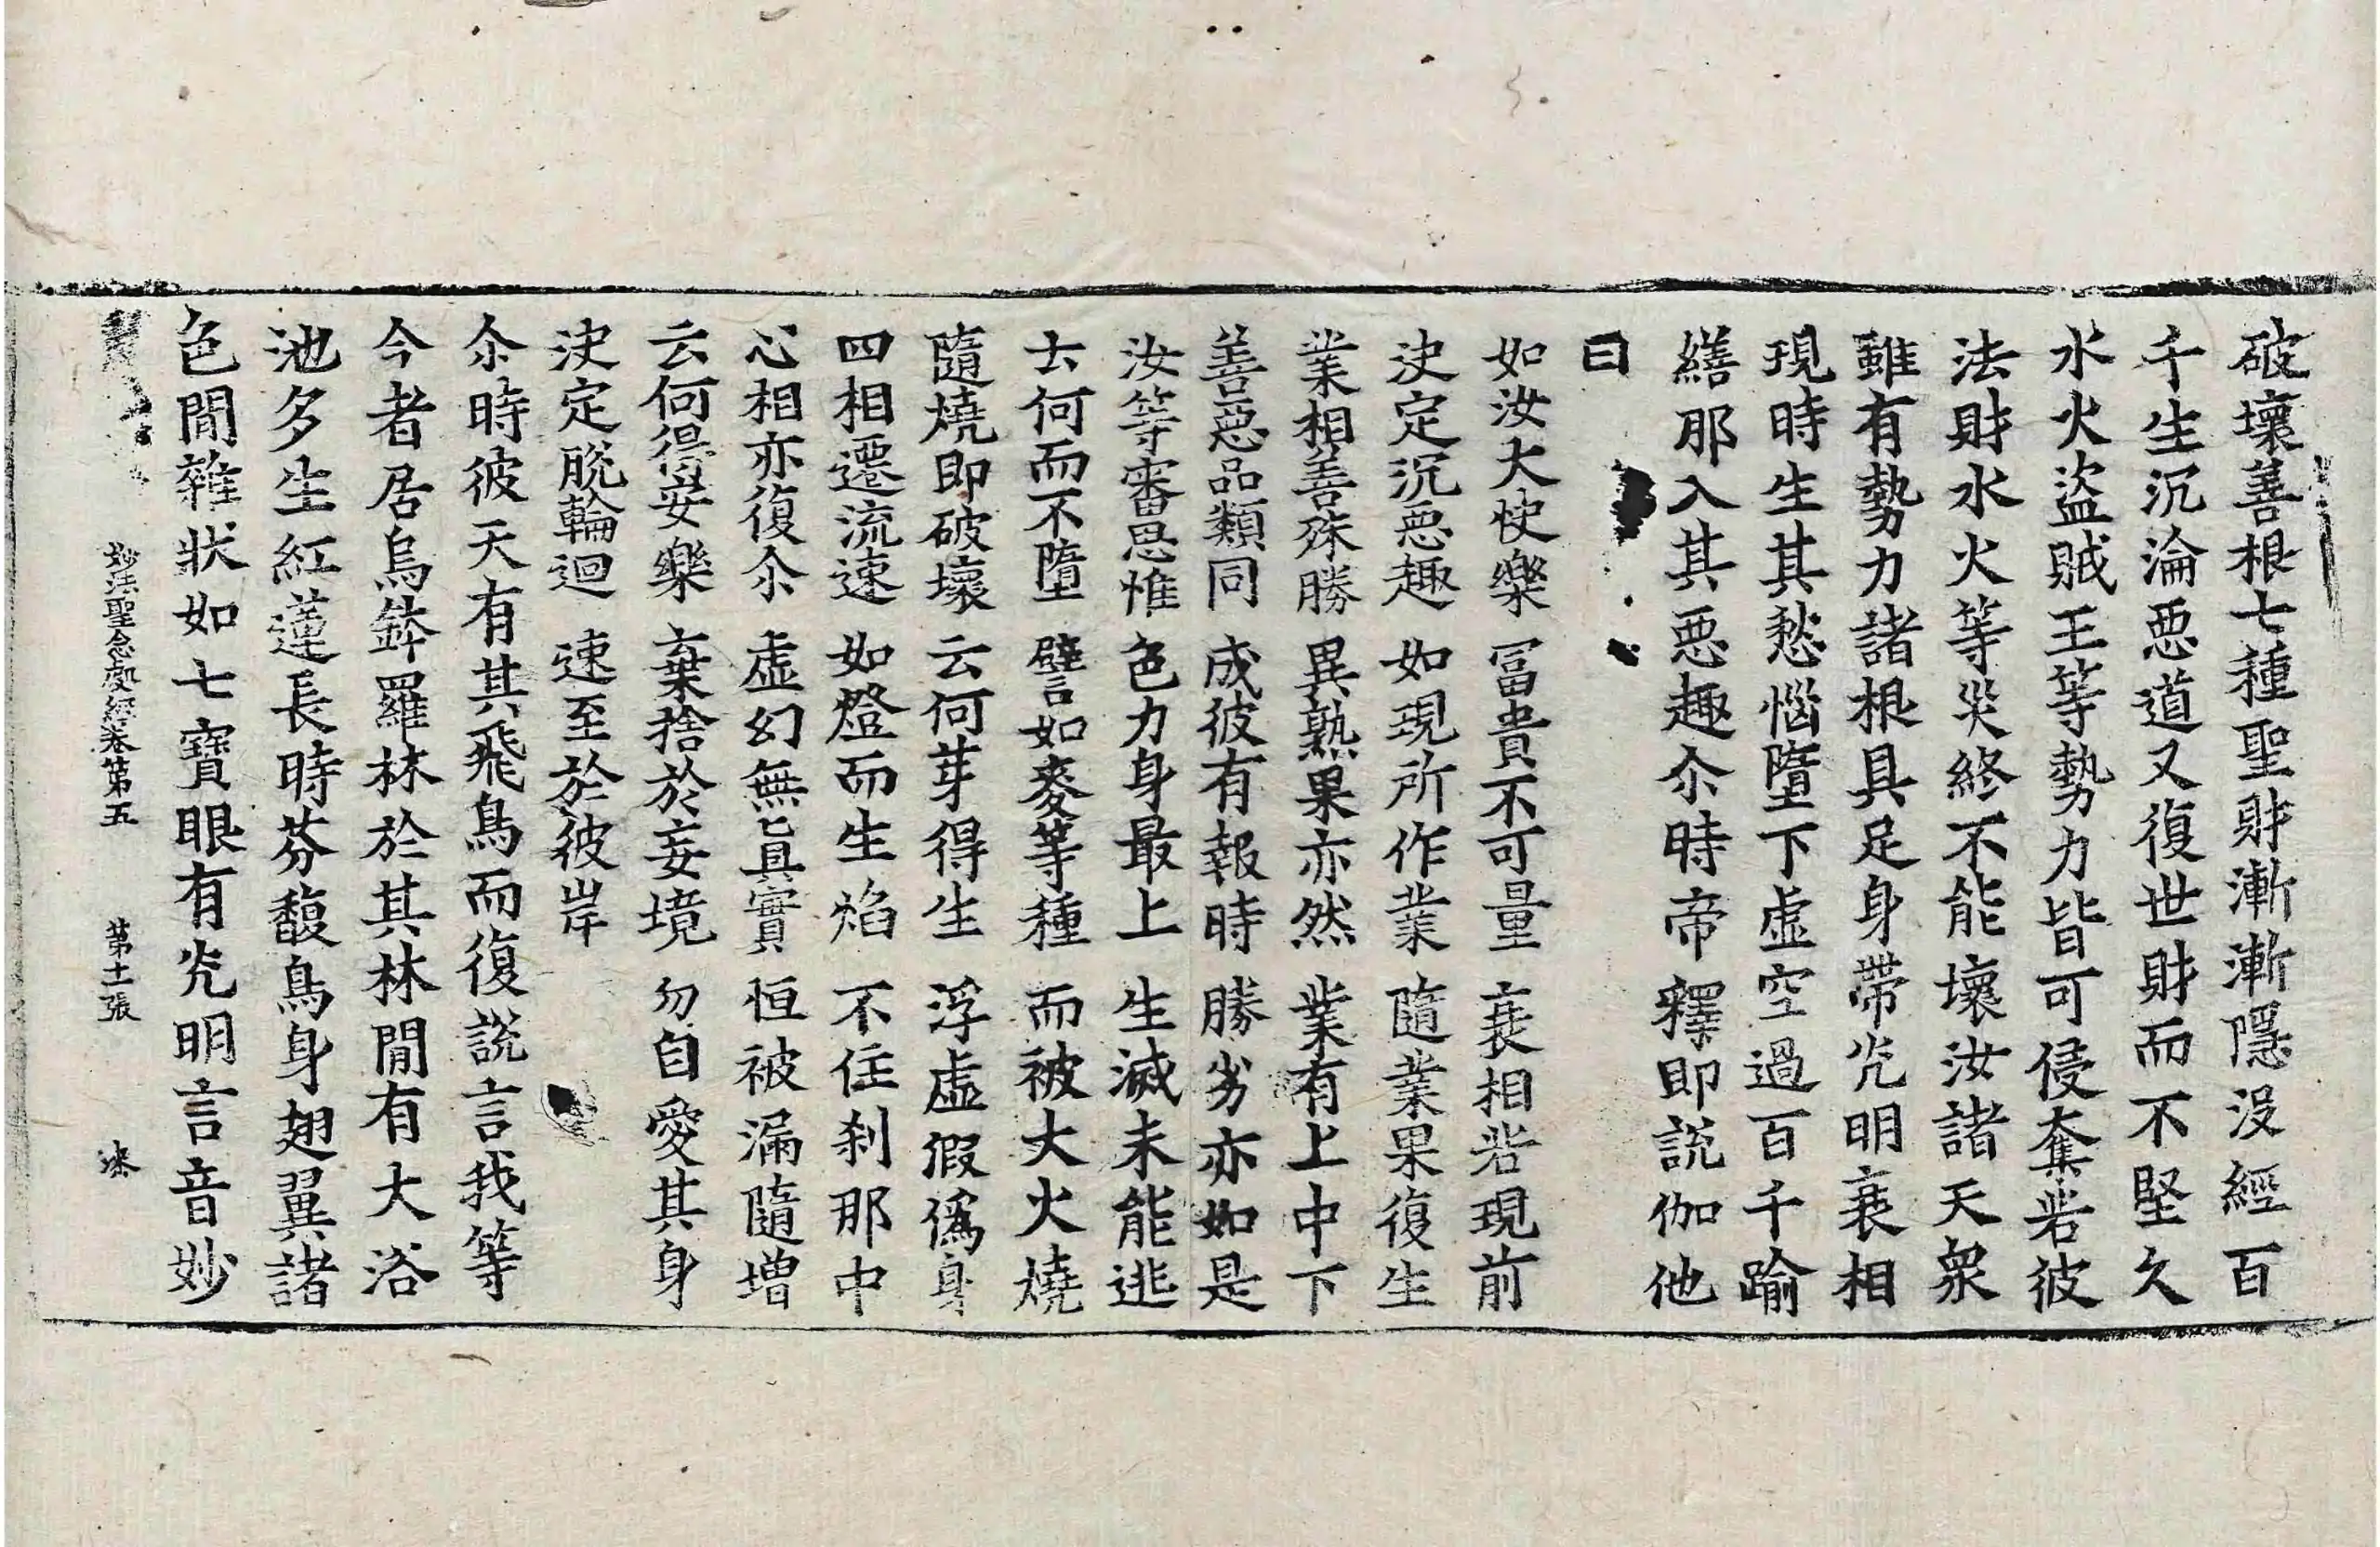 破壞善根七種聖財漸漸隱沒經百
千生沉淪惡道又復世財而不堅久
水火盜賊王等勢力皆可侵奪若彼
法財水火等災終不能壞汝諸天衆
雖有勢力諸根具足身帶光明衰相
現時生其愁惱墮下虛空過百千踰
繕那入其惡趣尒時帝釋即說伽他
曰
如汝大快樂 冨貴不可量 衰相若現前
決定沉惡趣 如現所作業 隨業果復生
業相善殊勝 異熟果亦然 業有上中下
善惡品類同 成彼有報時 勝劣亦如是
汝等審思惟 色力身最上 生滅未能逃
云何而不墮 譬如麥等種 而被大火燒
隨燒即破壞 云何芽得生 浮虛假僞身
四相遷流速 如燈而生焰 不住刹那中
心相亦復尒 虛幻無眞實 恒被漏隨增
云何得安樂 棄捨於妄境 勿自愛其身
決定脫輪迴 速至於彼岸
尒時彼天有其飛鳥而復說言我等
今者居烏鉢羅林於其林閒有大浴
池多生紅蓮長時芬馥鳥身翅翼諸
色閒雜狀如七寶眼有光明言音妙
妙法聖念處經卷第五 第十一張